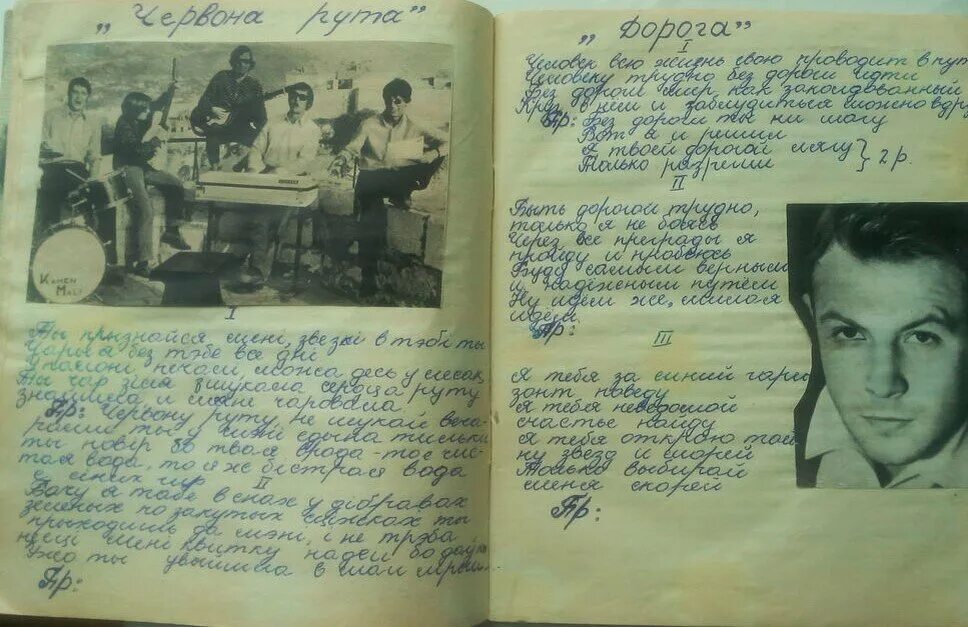 „Червона рута”
KAMEN
MALI
I
Ты прызнайся мені, звезкі в тэбі ты
Чары я без тэбе все дні
У полоні печали можа десь у лесах
Ты чар зіля шукала сонца руту
знайшла и мэнэ чаровала
Пр: Червону руту, не шукай веча-
рами ты у мэнэ едына тильки
ты повір бо твоя врода - тое чис-
тая вода, то я же быстрая вода
с синих гир
II
Бачу я тэбе в снах у дібравах
зеленых по забутых стежках ты
прыходишь до мэнэ, і не трэба
нести мені квитку надеи бо даўно
Ужо ты увойшла в мои мрыи
Пр:
„Дорога”
I
Человек всю жизнь свою проводит в пути
Человеку трудно без дороги идти
Без дороги мир, как заколдованный
Круг, в нем и заблудиться можно вдруг
Пр: Без дороги ты ни шагу
Вот я и решил
Я твоей дорогой лягу } 2 р.
Только разреши
II
Быть дорогой трудно,
только я не боюсь
Через все преграды я
пройду и пробьюсь
Буду самым верным
и надёжным путём
Ну идем же, милая
идем.
Пр:
III
Я тебя за синий гори
зонт поведу
Я тебя неведомой
счастье найду
Я тебе открою тай
ну звезд и морей
Только выбирай
меня скорей
Пр: